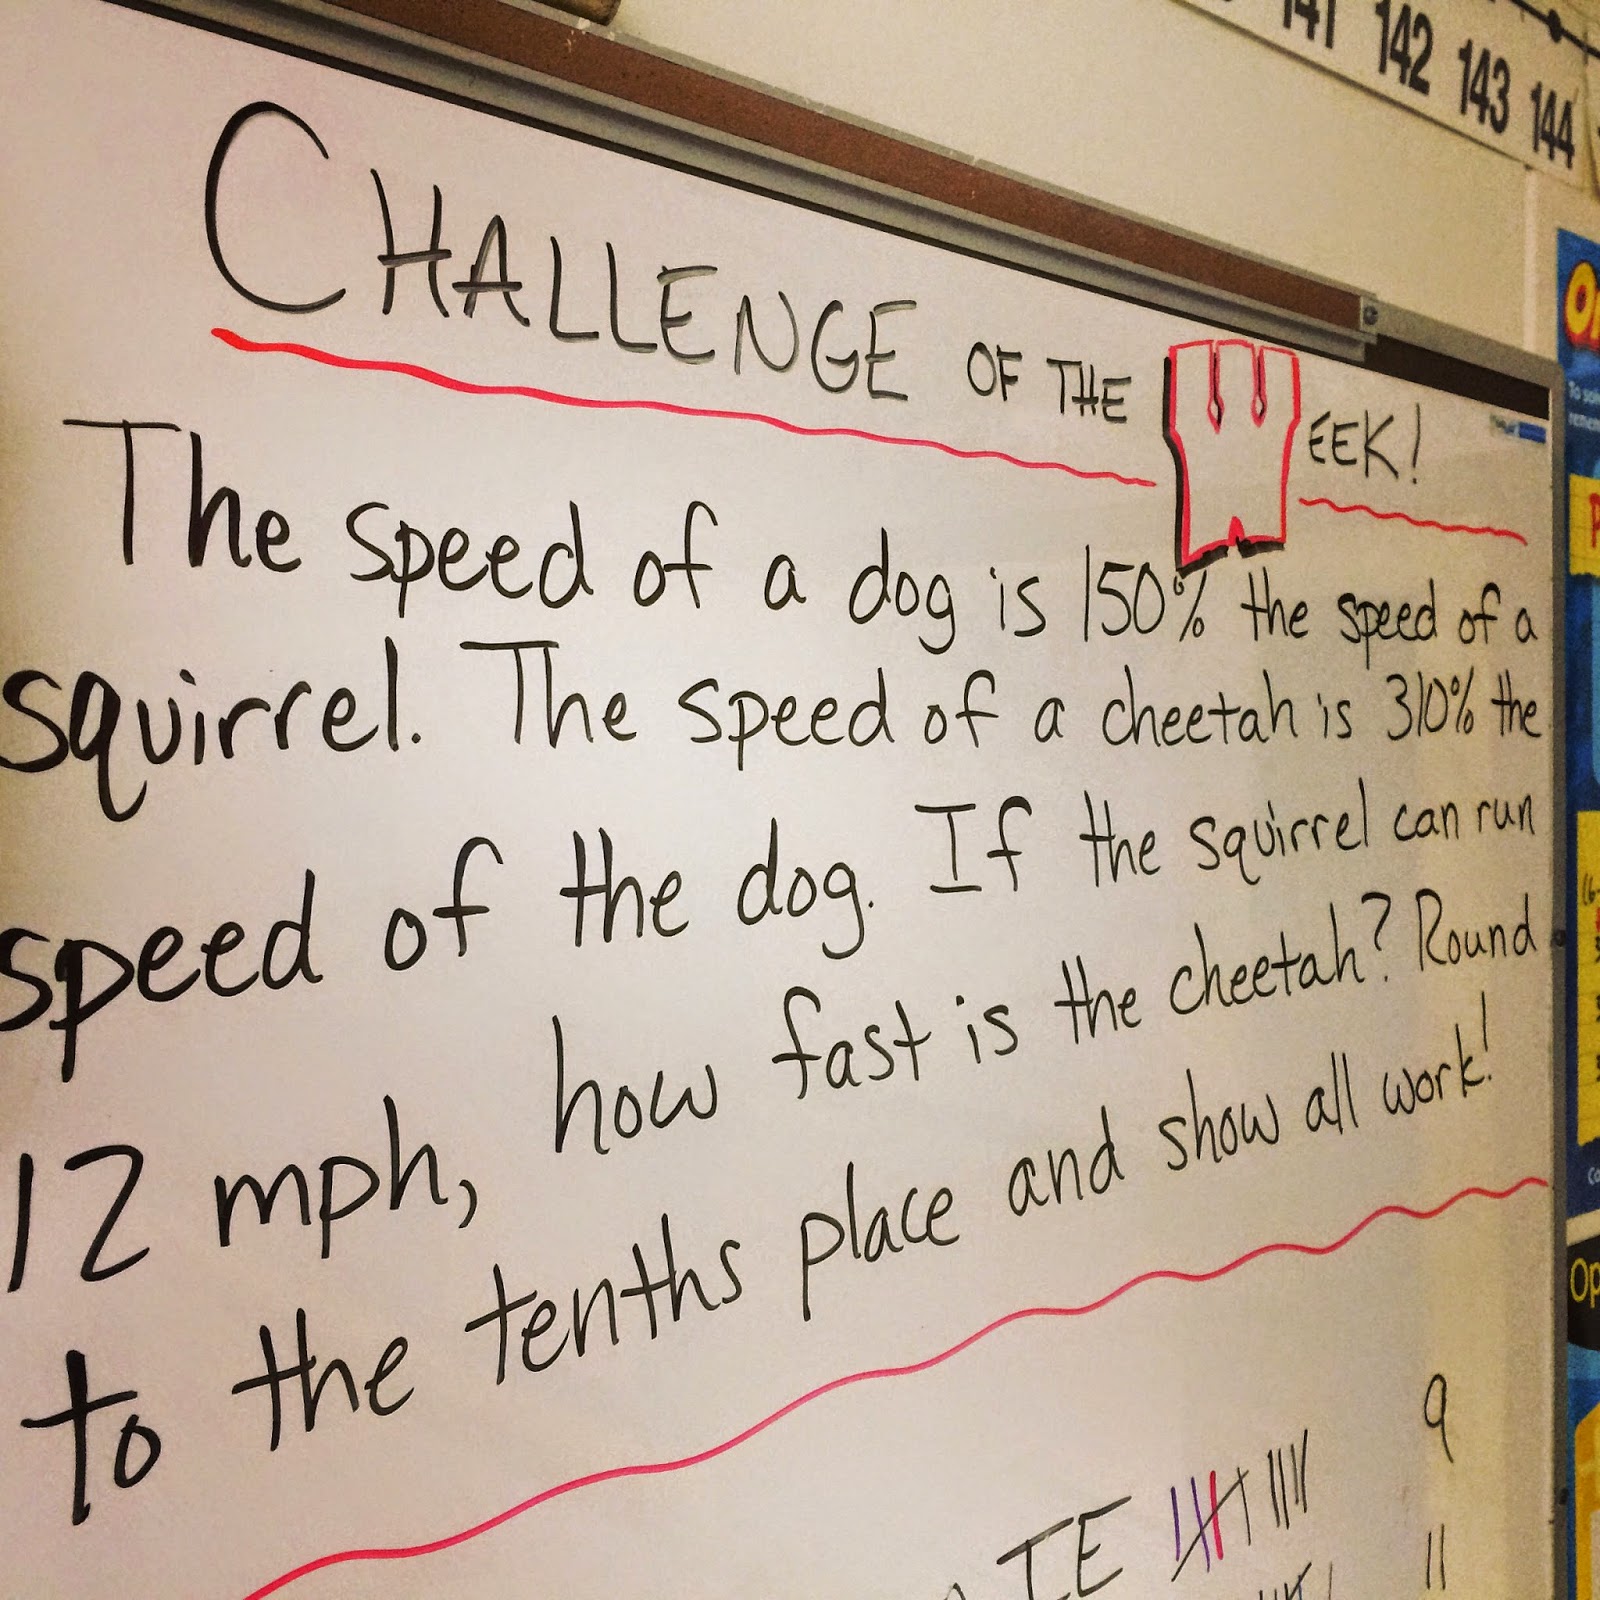 141 142 143 144
CHALLENGE OF THE WEEK!
The speed of a dog is 150% the speed of a
squirrel. The speed of a cheetah is 310% the
speed of the dog. If the squirrel can run
12 mph, how fast is the cheetah? Round
to the tenths place and show all work!
9
IE
11
To
Op